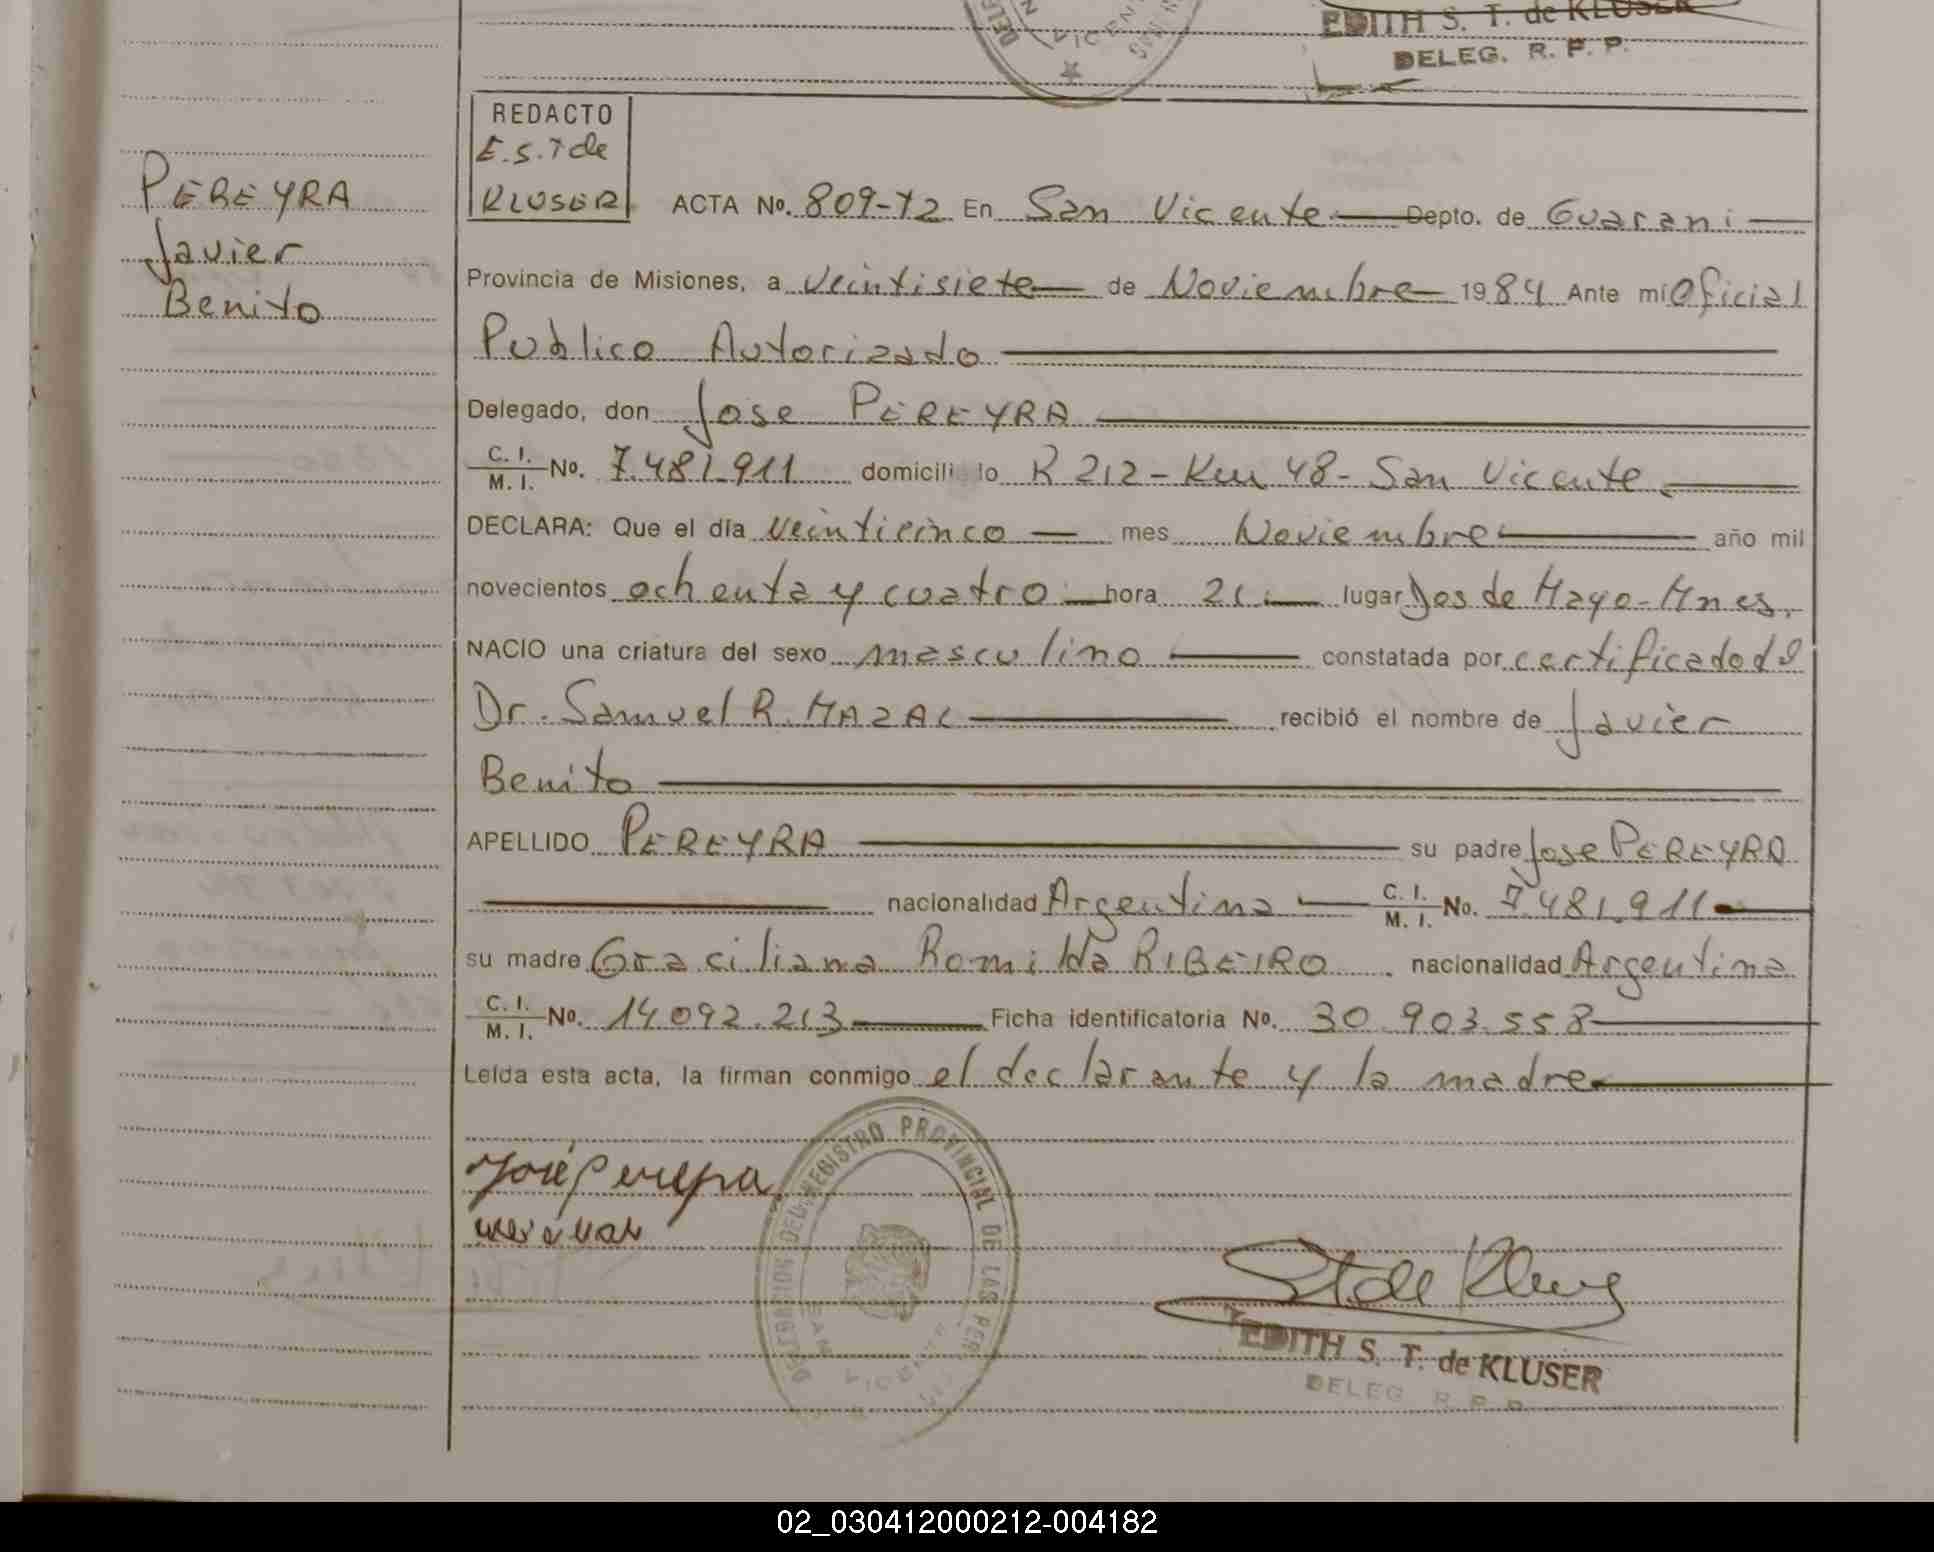 EDITH S. T. de KLUSER
DELEG. R. P. P.
REDACTO
E.S.T de
KLUSER
PEREYRA
Javier
Benito
ACTA No. 809-T2 En San Vicente Depto. de Guarani
Provincia de Misiones, a Veintisiete de Noviembre 1984 Ante mi Oficial
Publico Autorizado
Delegado, don Jose PEREYRA
C. I. M. I. No. 7.481.911 domicili lo R 212 - Km 48 - San Vicente
DECLARA: Que el día veinticinco mes Noviembre año mil
novecientos ochenta y cuatro hora 21 lugar Dos de Mayo - Mnes.
NACIO una criatura del sexo masculino constatada por certificado d
Dr. Samuel R. MAZAL recibió el nombre de Javier
Benito
APELLIDO PEREYRA su padre Jose PEREYRA
nacionalidad Argentina C. I. M. I. No. 7.481.911
su madre Graciliana Romilda RIBEIRO nacionalidad Argentina
C. I. M. I. No. 14.092.213 Ficha identificatoria No. 30.903.558
Leída esta acta, la firman conmigo el declarante y la madre
José Pereyra
DELEGACION DEL REGISTRO PROVINCIAL DE LAS PER
SAN VICENTE
EDITH S. T. de KLUSER
DELEG. R. P. P.
02_030412000212-004182